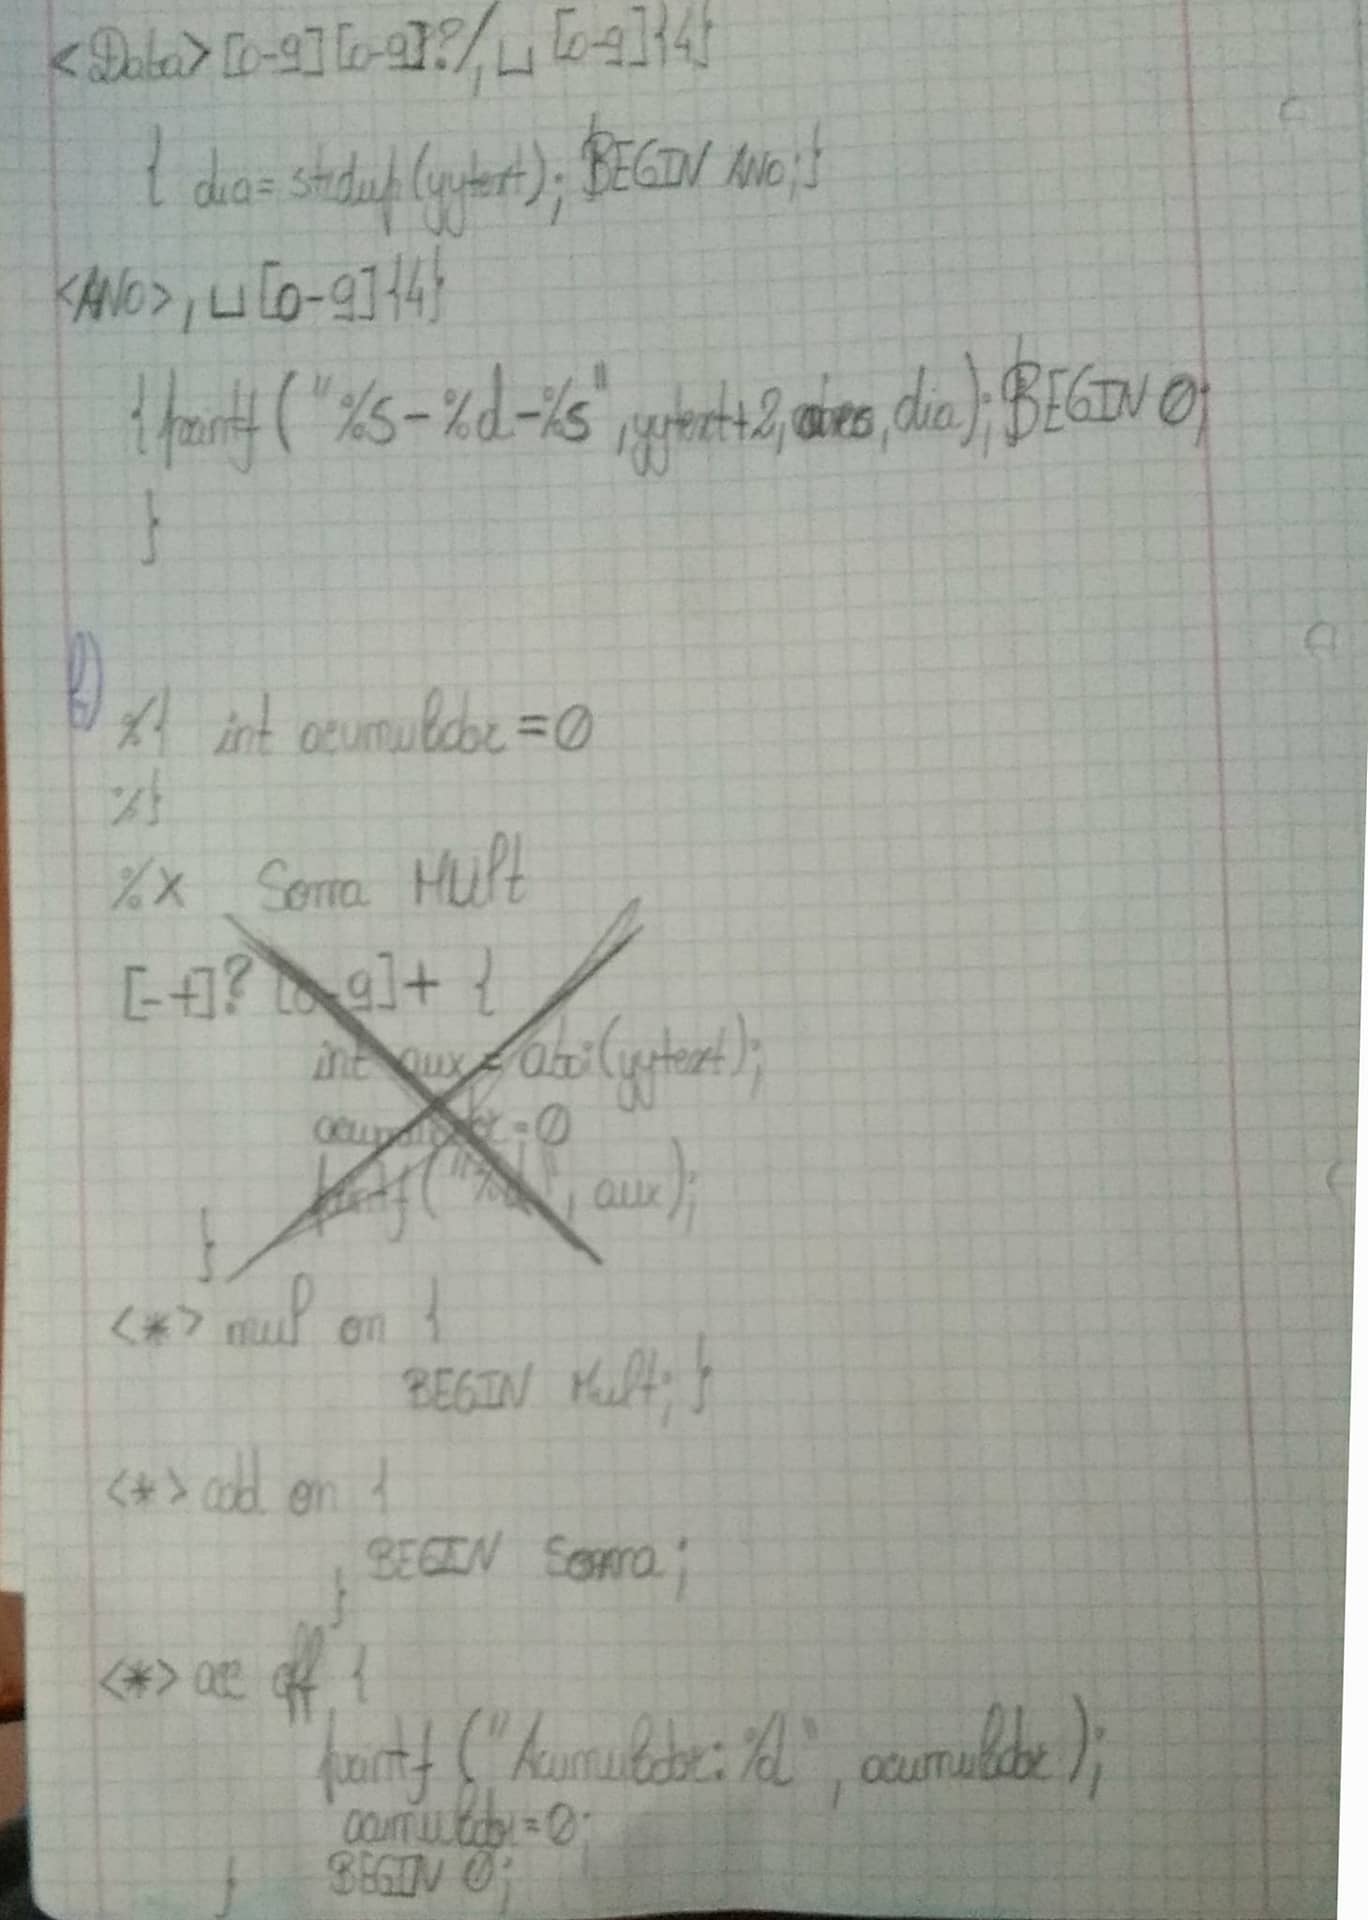 <Data>[0-9][0-9]?/,␣[0-9]{4}
{ dia=strdup(yytext); BEGIN ANO;}
<ANO>,␣[0-9]{4}
{printf("%s-%d-%s",yytext+2, , dia); BEGIN 0;
}
b)
%{ int acumulador=0
%}
%x Soma Mult
[-+]?[0-9]+ {
int aux = atoi(yytext);
acumulador=0
printf("%d", aux);
}
<*> mul on {
BEGIN Mult; }
<*> add on {
BEGIN Soma;
}
<*> acc off {
printf("Acumulador: %d", acumulador);
acumulador=0;
} BEGIN 0;